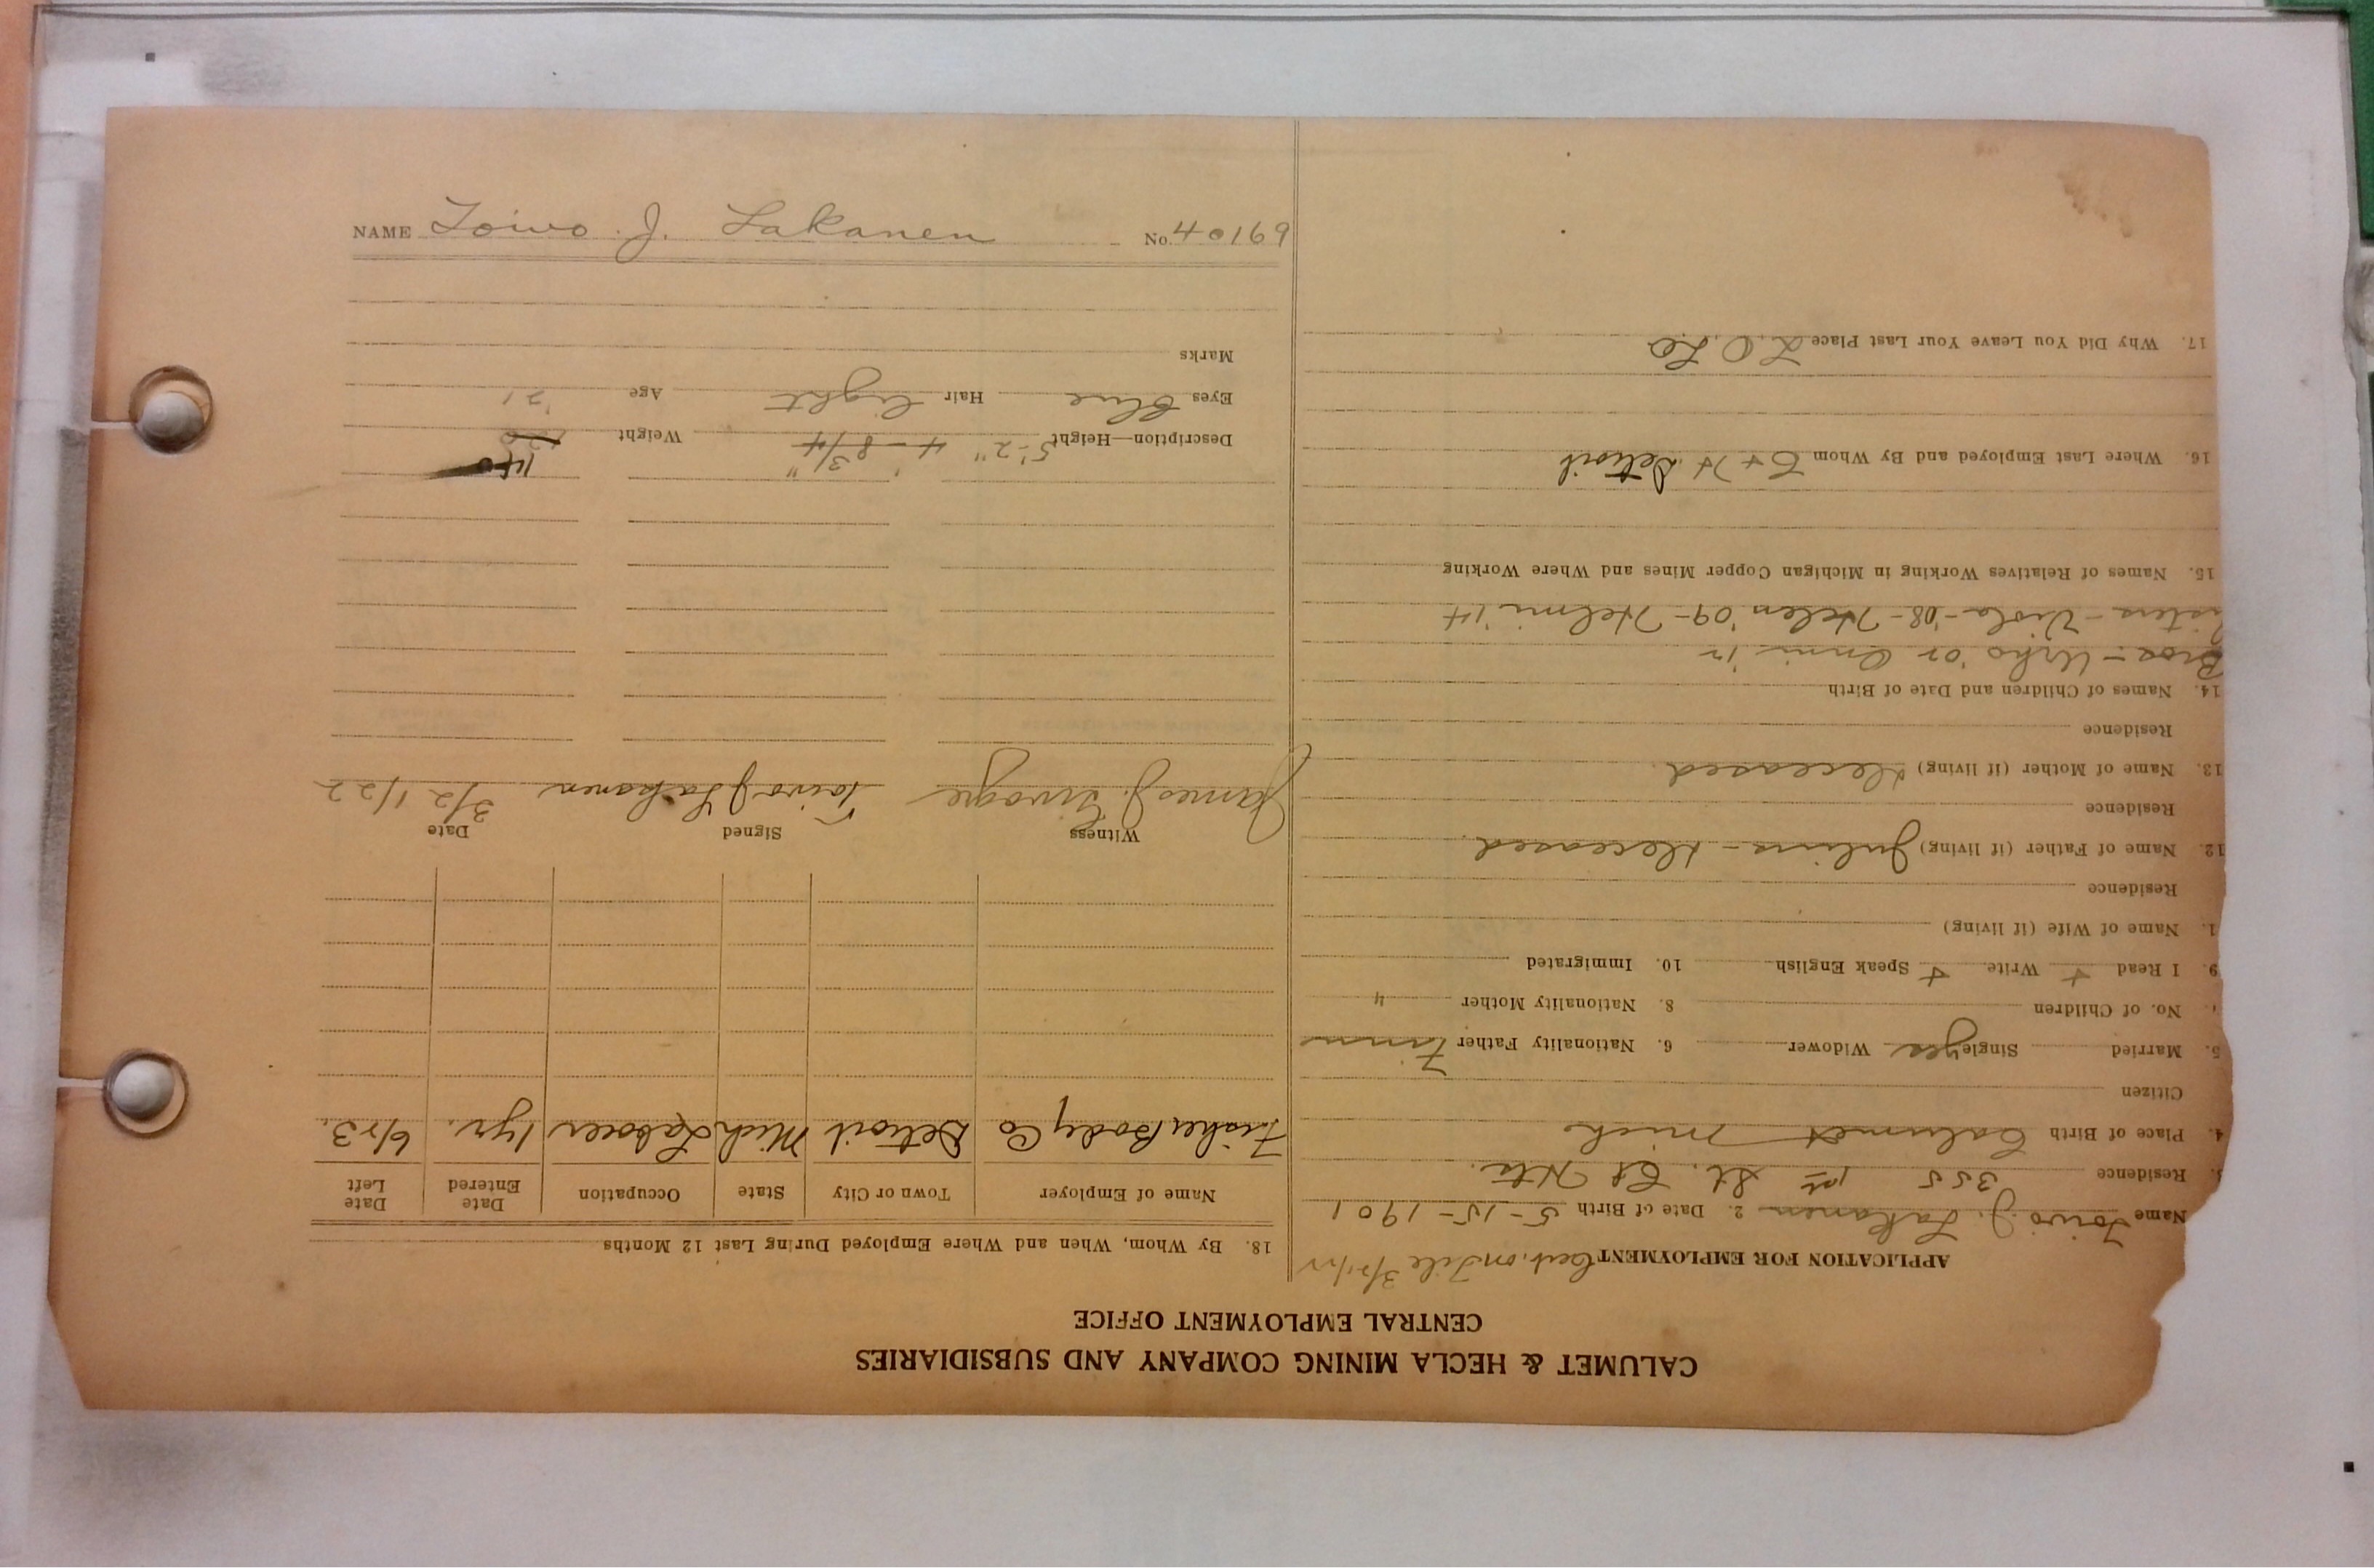 CALUMET & HECLA MINING COMPANY AND SUBSIDIARIES
CENTRAL EMPLOYMENT OFFICE
APPLICATION FOR EMPLOYMENT Cert. on File 3/21/22
Name Toivo J. Lakanen 2. Date of Birth 5-15-1901
3. Residence 355 1st St.
4. Place of Birth Calumet Mich
Citizen
5. Married Single yes Widower 6. Nationality Father Finn
No. of Children 8. Nationality Mother "
9. I Read + Write + Speak English 10. Immigrated
1. Name of Wife (if living)
Residence
12. Name of Father (if living) Julius - deceased.
Residence
13. Name of Mother (if living) deceased.
Residence
14. Names of Children and Date of Birth
Bros - Urho '05
isters - Viola - '08 - Helen '09 - Helmi '14
15. Names of Relatives Working in Michigan Copper Mines and Where Working
16. Where Last Employed and By Whom C + H Detroit
17. Why Did You Leave Your Last Place
18. By Whom, When and Where Employed During Last 12 Months
Name of Employer Town or City State Occupation Date Entered Date Left
Fisher Body Co Detroit Mich Laborer 1 yr. 6/23.
Witness Signed Date
James J. Toivo J Lakanen 3/21/22
140
Description—Height 5'-2" 4'-8 3/4" Weight
Eyes Blue Hair light Age 21
Marks
NAME Toivo J. Lakanen No. 40169